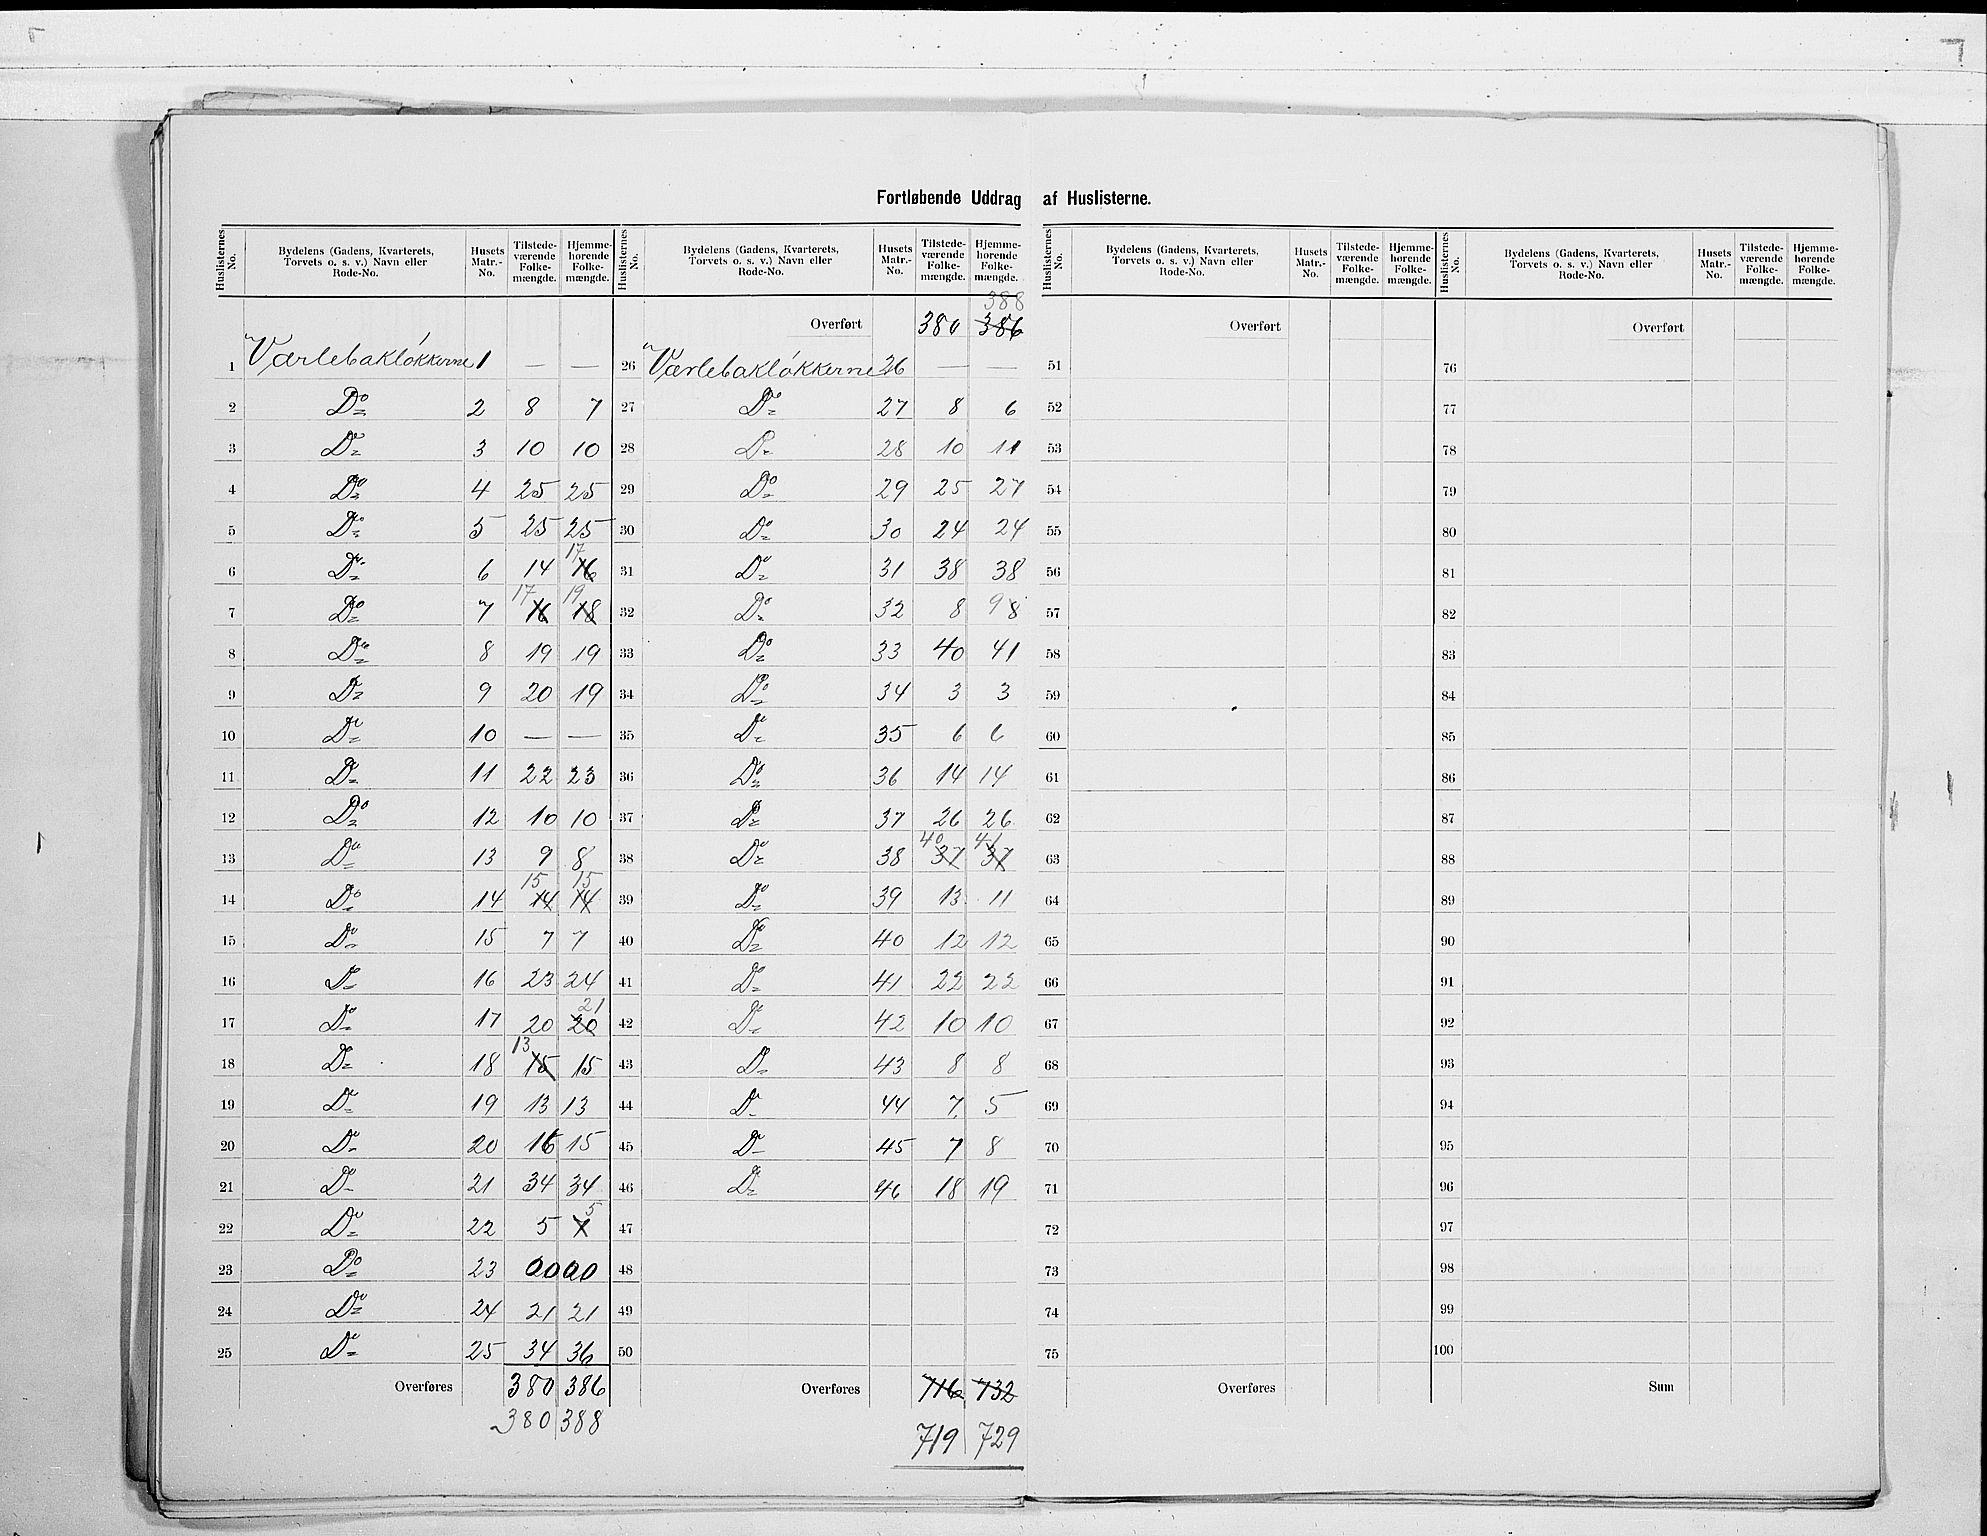 Fortløbende Uddrag af Huslisterne.
Huslisternes No. | Bydelens (Gadens, Kvarterets, Torvets o. s. v.) Navn eller Rode-No. | Husets Matr.-No. | Tilstedeværende Folkemængde. | Hjemmehørende Folkemængde.
1 Værlebakløkkerne 1 — —
2 Do 2 8 7
3 Do 3 10 10
4 Do 4 25 25
5 Do 5 25 25
6 Do 6 14 17 16
7 Do 7 17 16 19 18
8 Do 8 19 19
9 Do 9 20 19
10 Do 10 — —
11 Do 11 22 23
12 Do 12 10 10
13 Do 13 9 8
14 Do 14 15 14 15 14
15 Do 15 7 7
16 Do 16 23 24
17 Do 17 20 21 20
18 Do 18 13 15 15
19 Do 19 13 13
20 Do 20 16 15
21 Do 21 34 34
22 Do 22 5 5 7
23 Do 23 00 00
24 Do 24 21 21
25 Do 25 34 36
Overføres 380 386
380 388
Huslisternes No. | Bydelens (Gadens, Kvarterets, Torvets o. s. v.) Navn eller Rode-No. | Husets Matr.-No. | Tilstedeværende Folkemængde. | Hjemmehørende Folkemængde.
388
Overført 380 386
26 Værlebakløkkerne 26 — —
27 Do 27 8 6
28 Do 28 10 11
29 Do 29 25 27
30 Do 30 24 24
31 Do 31 38 38
32 Do 32 8 9 8
33 Do 33 40 41
34 Do 34 3 3
35 Do 35 6 6
36 Do 36 14 14
37 Do 37 26 26
38 Do 38 40 37 41 37
39 Do 39 13 11
40 Do 40 12 12
41 Do 41 22 22
42 Do 42 10 10
43 Do 43 8 8
44 Do 44 7 5
45 Do 45 7 8
46 Do 46 18 19
47
48
49
50
Overføres 716 732
719 729
Huslisternes No. | Bydelens (Gadens, Kvarterets, Torvets o. s. v.) Navn eller Rode-No. | Husets Matr.-No. | Tilstedeværende Folkemængde. | Hjemmehørende Folkemængde.
Overført
51
52
53
54
55
56
57
58
59
60
61
62
63
64
65
66
67
68
69
70
71
72
73
74
75
Overføres
Huslisternes No. | Bydelens (Gadens, Kvarterets, Torvets o. s. v.) Navn eller Rode-No. | Husets Matr.-No. | Tilstedeværende Folkemængde. | Hjemmehørende Folkemængde.
Overført
76
77
78
79
80
81
82
83
84
85
86
87
88
89
90
91
92
93
94
95
96
97
98
99
100
Sum